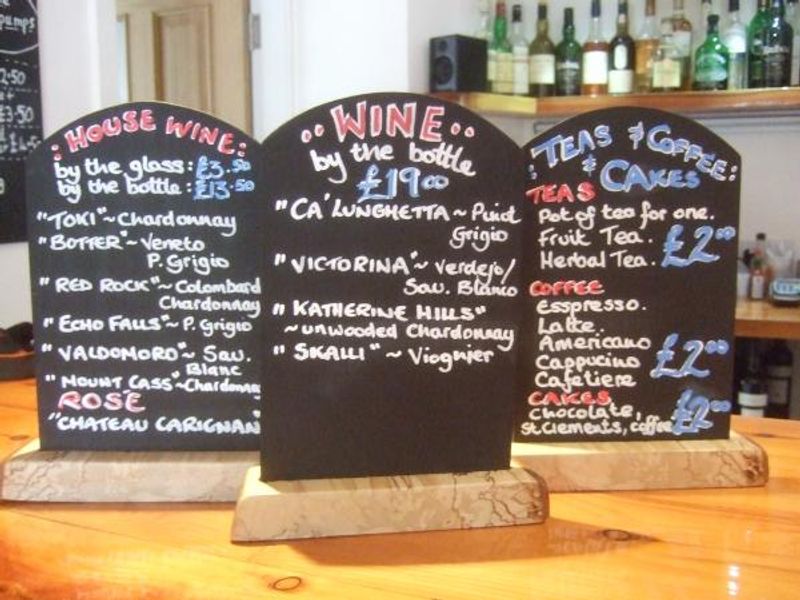 pumps
2.50
£3.50
: HOUSE WINE :
by the glass : £3.50
by the bottle : £13.50
"TOKI" ~ Chardonnay
"BOTTER" ~ Veneto
P. Grigio
"RED ROCK" ~ Colombard
Chardonnay
"ECHO FALLS" ~ P. Grigio
"VALDOMORO" ~ Sau.
Blanc
"MOUNT CASS" ~ Chardonnay
ROSE
"CHATEAU CARIGNAN"
.. WINE ..
by the bottle
£19.00
"CA' LUNGHETTA ~ Pinot
Grigio
"VICTORINA" ~ Verdejo/
Sau. Blanco
"KATHERINE HILLS"
~ unwooded Chardonnay
"SKALLI" ~ Viognier
: TEAS & COFFEE :
& CAKES
TEAS
Pot of tea for one.
Fruit Tea.
Herbal Tea. £2.00
COFFEE
Esspresso.
Latte.
Americano
Cappucino £2.00
Cafetiere
CAKES
Chocolate,
St Clements, coffee £2.00